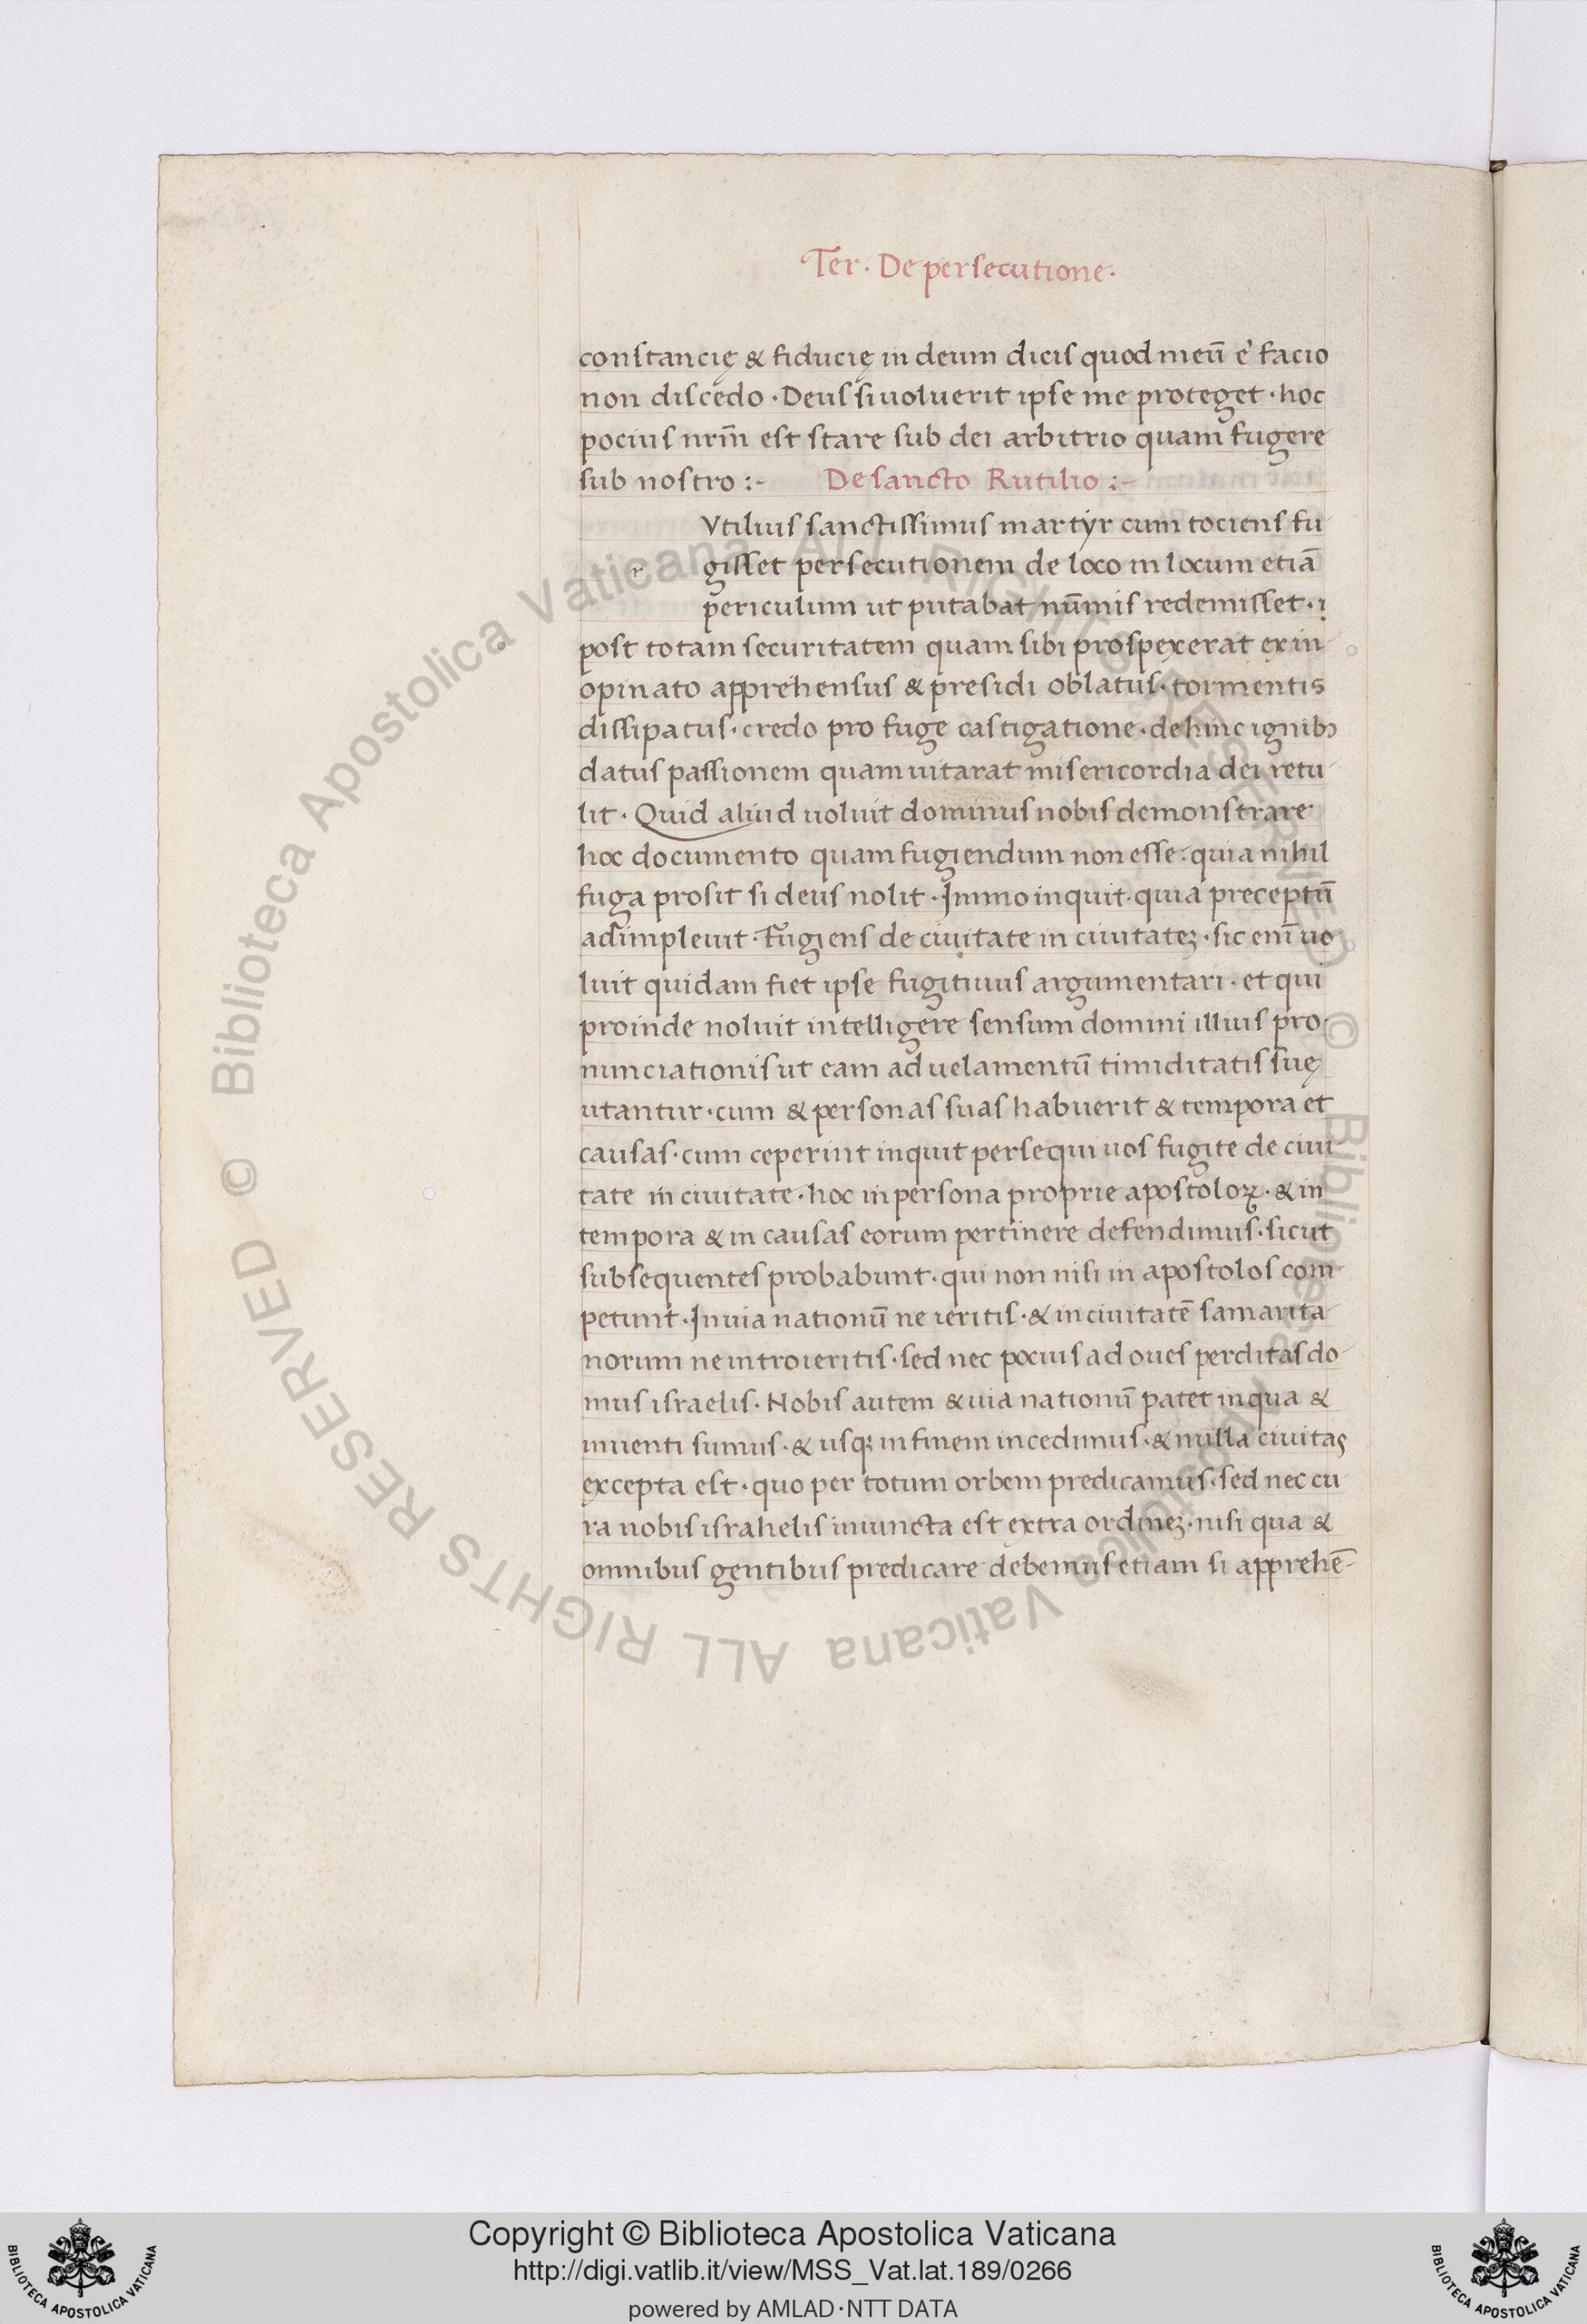 Ter · De persecutione ·
constancię & fiducię in deum dicis quod meū ē facio
non discedo · Deus si uoluerit ipse me proteget · hoc
pocius nrm̄ est stare sub dei arbitrio quam fugere
sub nostro :- De sancto Rutilio :-
Vtilius sanctissimus martyr cum tociens fu
r gisset persecutionem de loco in locum etiā
periculum ut putabat nūmis redemisset · i
post totam securitatem quam sibi prospexerat ex in
opinato apprehensus & presidi oblatus · tormentis
dissipatus · credo pro fuge castigatione · dehinc ignibꝫ
datus passionem quam uitarat misericordia dei retu
lit · Quid aliud uoluit dominus nobis demonstrare
hoc documento quam fugiendum non esse · quia nihil
fuga prosit si deus nolit · Immo inquit · quia preceptū
adimpleuit · Fugiens de ciuitate in ciuitateꝫ · sic enī uo
luit quidam fiet ipse fugitiuus argumentari · et qui
proinde noluit intelligere sensum domini illius pro
nunciationis ut eam ad uelamentū timiditatis suę
utantur · cum & personas suas habuerit & tempora et
causas · cum ceperint inquit persequi uos fugite de ciui
tate in ciuitate · hoc in persona proprie apostoloꝝ · & in
tempora & in causas eorum pertinere defendimus · sicut
subsequentes probabunt · qui non nisi in apostolos com
petunt · In uia nationū ne ieritis · & in ciuitatē samarita
norum ne introieritis · sed nec pocius ad oues perditas do
mus israelis · Nobis autem & uia nationū patet in qua &
inuenti sumus · & usqꝫ in finem incedimus · & nulla ciuitas
excepta est · quo per totum orbem predicamus · sed nec cu
ra nobis israhelis iniuncta est extra ordineꝫ · nisi qua &
omnibus gentibus predicare debemus etiam si apprehē-
© Biblioteca Apostolica Vaticana ALL RIGHTS RESERVED © Biblioteca Apostolica Vaticana ALL RIGHTS RESERVED
Copyright © Biblioteca Apostolica Vaticana
http://digi.vatlib.it/view/MSS_Vat.lat.189/0266
powered by AMLAD·NTT DATA
BIBLIOTECA APOSTOLICA VATICANA
BIBLIOTECA APOSTOLICA VATICANA